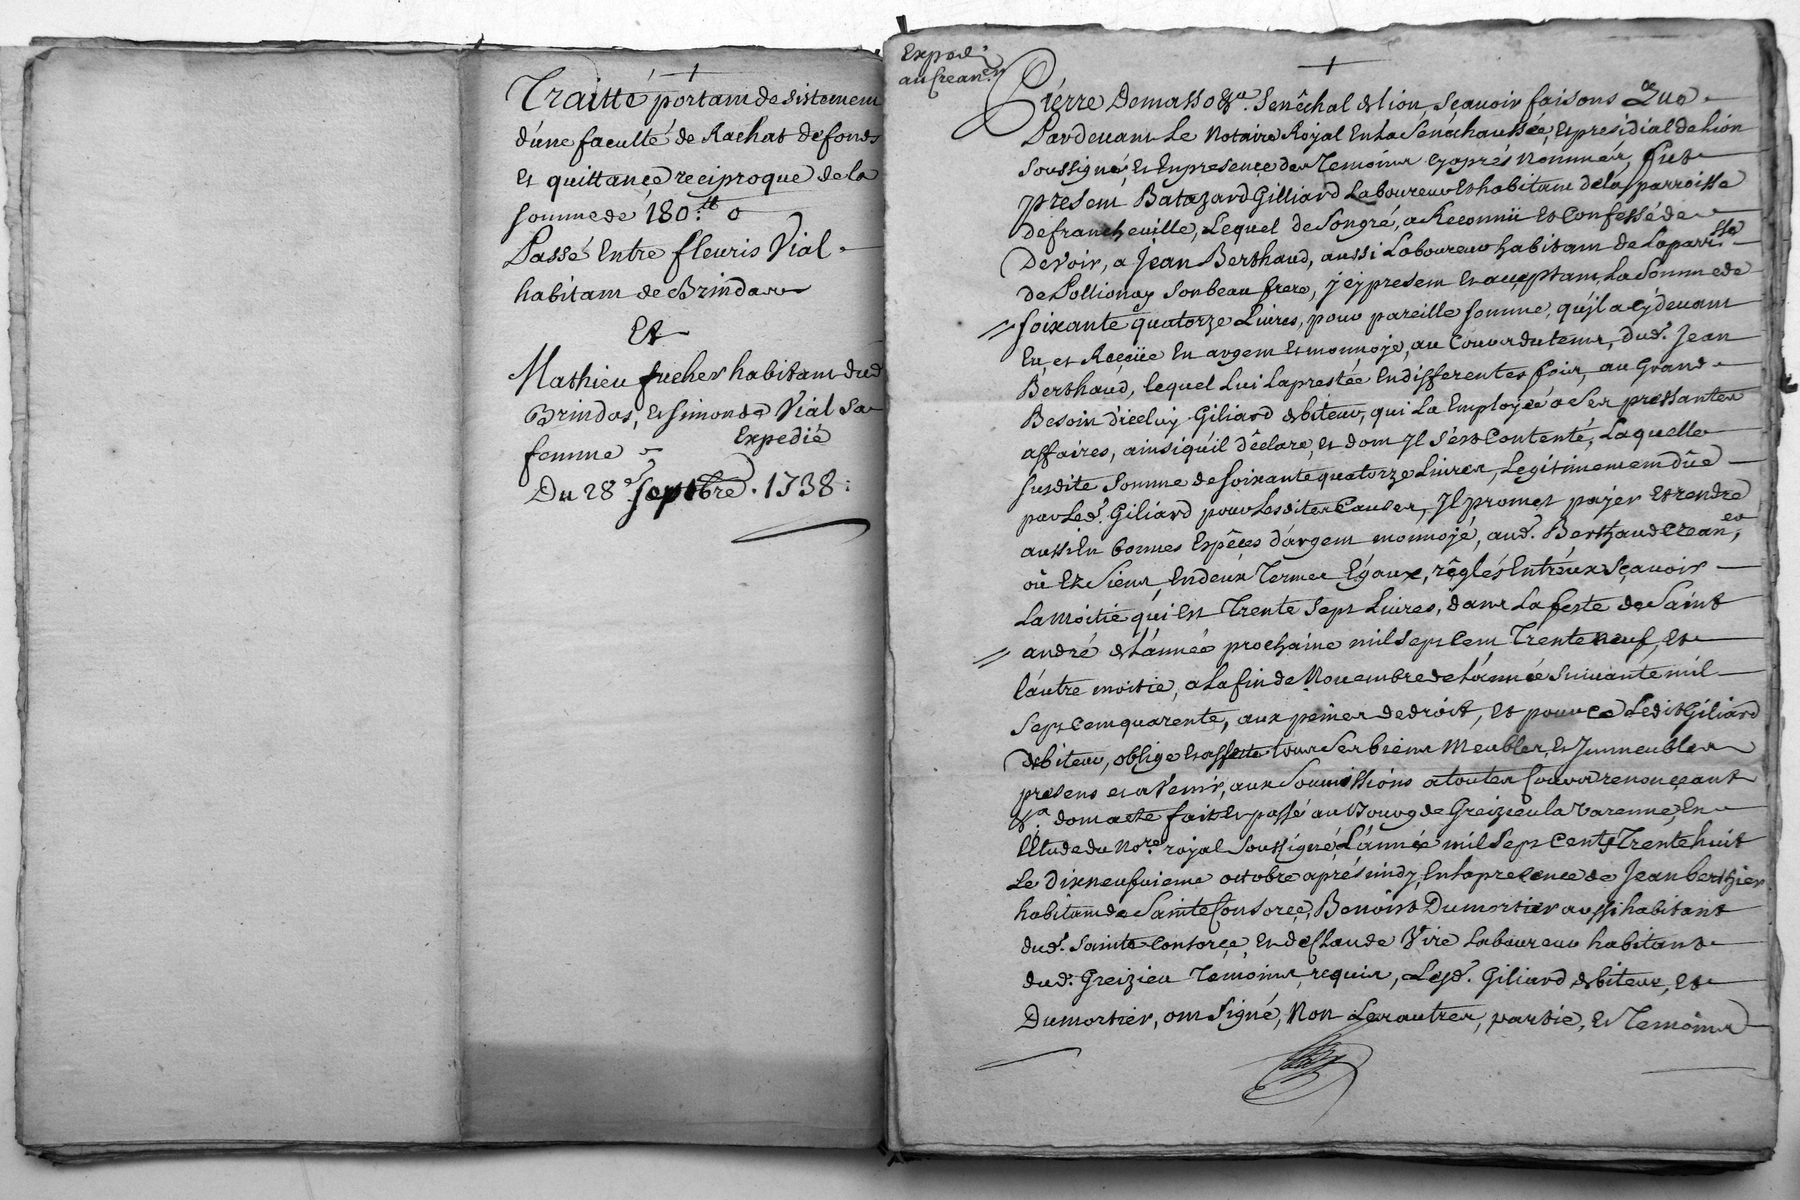 Traitté portant desistement
d'une faculté de Rachat de fonds
et quittance reciproque de la
somme de 180.ᵗᵗ o
Passé Entre fleuris Vial
habitant de Brindas
Et
Mathieu fucher habitant dud
Brindas, et Simonde Vial sa
femme
Expedié
Du 28ᵉ Septbre. 1738.
Exped.
au Crean.er
Pierre Demasso &a. Senêchal de lion sçavoir faisons Que
Pardevant Le Notaire Royal En La Sénéchaussée, et presidial de Lion
soussigné, et En presence des Temoins cy aprés nommés, fut
present Batazard Gilliard Laboureur et habitant dela parroisse
de francheville, Lequel de Son gré, a Reconnü et Confessé de
Devoir, a Jean Berthaud, aussi Laboureur habitant de La parr.sse
de Pollionay son beau frere, icy present et acceptant, La Somme de
soixante quatorze Livres, pour pareille somme, qu'il a cy devant
Eu, et Reçeüe En argent et monnoye, au Cours du tems, dud. Jean
Berthaud, lequel Lui La prestée En differentes fois, au Grand
Besoin d'icelui Giliard debiteur, qui La Employée a Ses pressantes
affaires, ainsi qu'il déclare, et dont Il s'est Contenté, Laquelle
susdite Somme de soixante quatorze Livres, Legitimement düe
par Led. Giliard pour Les dites Causes, Il promet payer et rendre
aussi En bonnes Espêces d'argent monnoyé, aud. Berthaud Crean.er,
où Ez Siens, En deux Termes Egaux, règlés Entr'eux sçavoir
La moitié qui est Trente Sept Livres, dans La feste de Saint
andré de L'année prochaine mil Sept Cent Trente neuf, et
l'autre moitié, a La fin de Novembre de L'année suivante mil
Sept Cent quarente, aux peines de droit, et pour ce Ledit Giliard
debiteur, oblige et affecte tous Ses biens Meubles, et Immeubles
presens et a Venir, aux Soumissions a toutes Cours renonçeant
&a. dont acte fait et passé au Bourg de Greizieu la Varenne, En
Etude du No.re royal Soussigné, L'année mil Sept Cent Trente huit
Le dixneufuieme octobre aprés midy, En La presence de Jean berthier
habitant de Sainte Consorce, Benoist Dumortier aussi habitant
dud. Sainte Consorce, et de Claude Vire Laboureur habitant
dud. Greizieu Temoins, requis, Lesd. Giliard debiteur, et
Dumortier, ont Signé, Non Les autres, partie, et Temoins